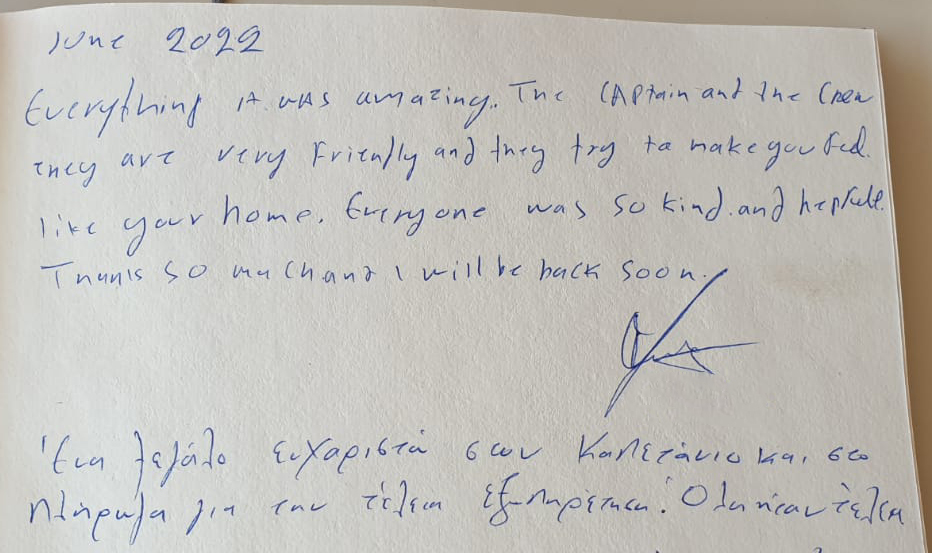 June 2022
Everything it was amazing. The Captain and the Crew
they are very Friendly and they try to make you feel.
like your home. Everyone was so kind. and hepfull.
Thanks so much and I will be back soon.
Ένα μεγάλο ευχαριστώ στον Καπετάνιο και στο
πλήρωμα για την τέλεια εξυπηρέτηση. Όλα ήταν τέλεια